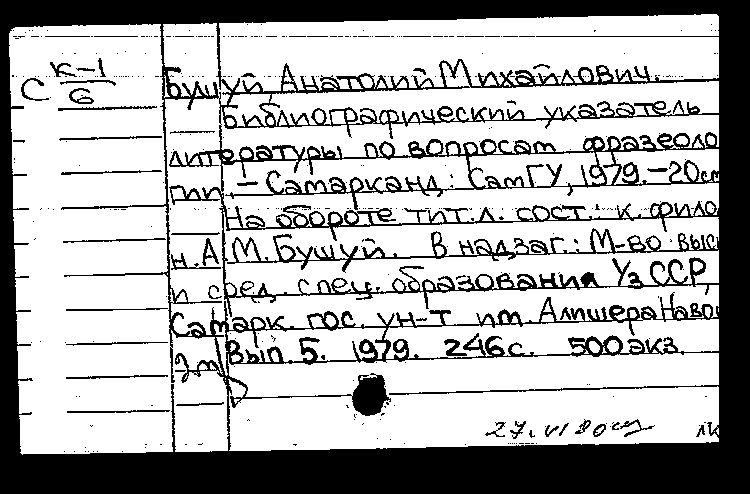 С К-1/6
Бушуй, Анатолий Михайлович.
Библиографический указатель
литературы по вопросам фразеоло
гии. – Самарканд: СамГУ, 1979. – 20см
На обороте тит. л. сост.: к. фило
н. А. М. Бушуй. В надзаг.: М-во высш
и сред. спец. образования УзССР,
Самарк. гос. ун-т им. Алишера Навои
Вып. 5. 1979. 246с. 500экз.
27. VI 80